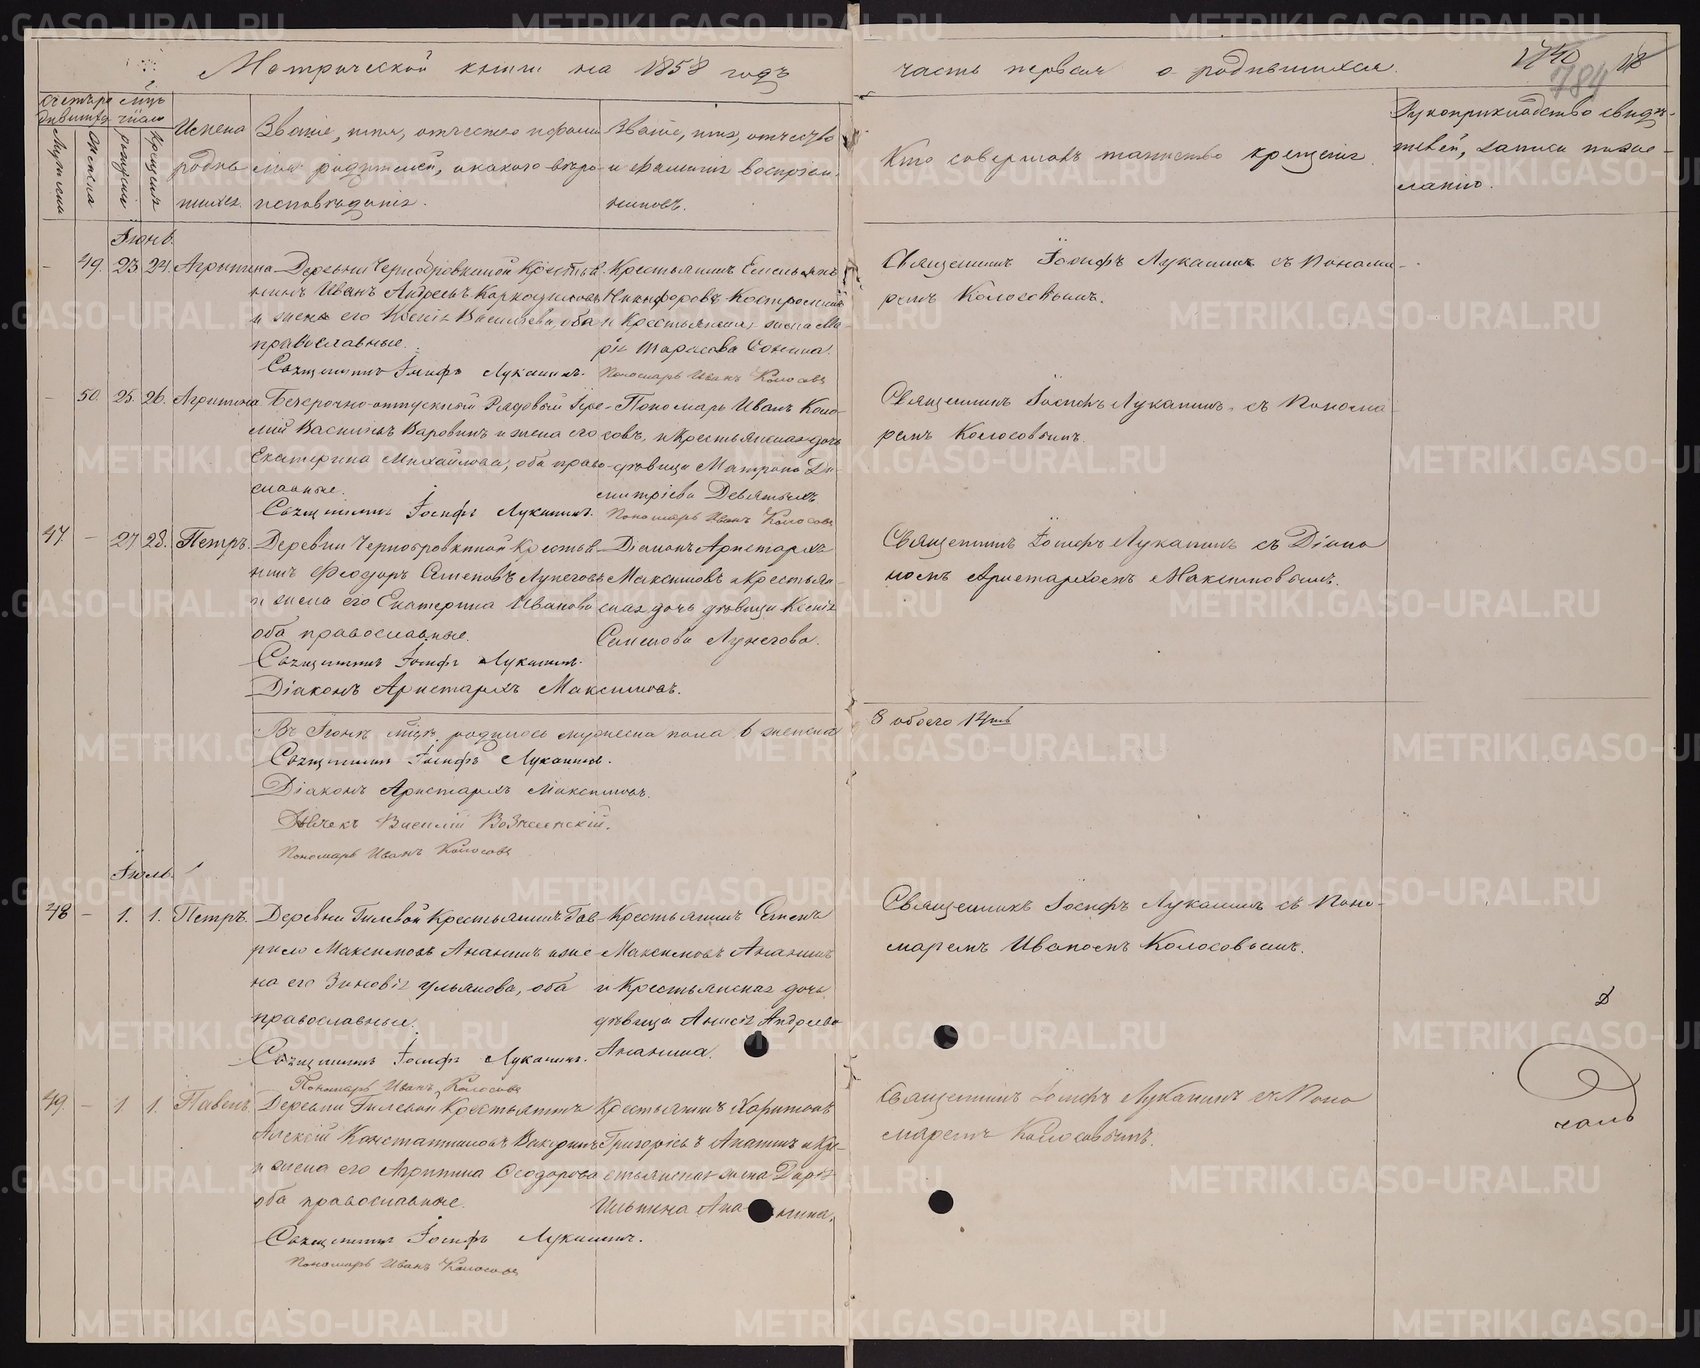 Метрической книги на 1858 годъ
часть первая о родившихся.
784
Имена родившихся.
Званіе, имя, отчество и фамилія родителей, и какого вѣроисповѣданія.
Званіе, имя, отчество и фамилія воспріемниковъ.
Кто совершалъ таинство крещенія
Рукоприкладство свидѣтелей, записи по желанію.
Мужеска
Женска
рожденія
крещенія
Іюнь.
49. 23. 24. Агрипина
Деревни Чернобровкиной Крестья-
нинъ Иванъ Андреевъ
и жена его Ксенія Васильева, оба
православные.
Священникъ Іосифъ Луканинъ.
Крестьянинъ Емельянъ
Никифоровъ
и Крестьянская жена Ма-
рія Тарасова
Пономарь Иванъ Колосовъ
Священникъ Іосифъ Луканинъ съ Понама-
ремъ Колосовымъ.
50. 25. 26. Агрипина
Безсрочно-отпускный Рядовый
Василій Варовинъ и жена его
Екатерина Михайлова, оба право-
славные.
Священникъ Іосифъ Луканинъ.
Пономарь Иванъ Коло-
совъ, и Крестьянская дочь
дѣвица Матрона Ди-
митріева Девятыхъ
Пономарь Иванъ Колосовъ
Священникъ Іосифъ Луканинъ, съ Понома-
ремъ Колосовымъ.
47 - 27. 28. Петръ.
Деревни Чернобровкиной Крестья-
нинъ Феодоръ Семеновъ Лунеговъ
и жена его Екатерина Иванова
оба православные.
Священникъ Іосифъ Луканинъ.
Діаконъ Аристархъ Максимовъ.
Діаконъ Аристархъ
Максимовъ и Крестьян-
ская дочь дѣвица Ксенія
Семенова Лунегова.
Священникъ Іосифъ Луканинъ съ Діако
номъ Аристархомъ Максимовымъ.
Въ Іюнѣ мцѣ родилось мужеска пола 6 женска
8 обоего 14ть
Священникъ Іосифъ Луканинъ.
Діаконъ Аристархъ Максимовъ.
Дьячекъ Василій Вознесенскій.
Пономарь Иванъ Колосовъ
Іюль.
48 - 1. 1. Петръ.
Деревни Гилевой Крестьянинъ Гав-
рило Максимовъ Ананьинъ и же-
на его Зиновія Ульянова, оба
православные.
Священникъ Іосифъ Луканинъ.
Пономарь Иванъ Колосовъ
Крестьянинъ Семенъ
Максимовъ Ананьинъ
и Крестьянская дочь
дѣвица Анисія Андреева
Ананьина.
Священникъ Іосифъ Луканинъ съ Поно-
маремъ Иваномъ Колосовымъ.
49. - 1 1. Павелъ.
Деревни Гилевой Крестьянинъ
Алексій Константиновъ
и жена его Агрипина Феодорова
оба православные.
Священникъ Іосифъ Луканинъ.
Пономарь Иванъ Колосовъ
Крестьянинъ Харитонъ
Григорьевъ Ананьинъ и Кре-
стьянская жена Дарія
Ильина Ана ньина.
Священникъ Іосифъ Луканинъ съ Поно
маремъ Колосовымъ.
METRIKI.GASO-URAL.RU